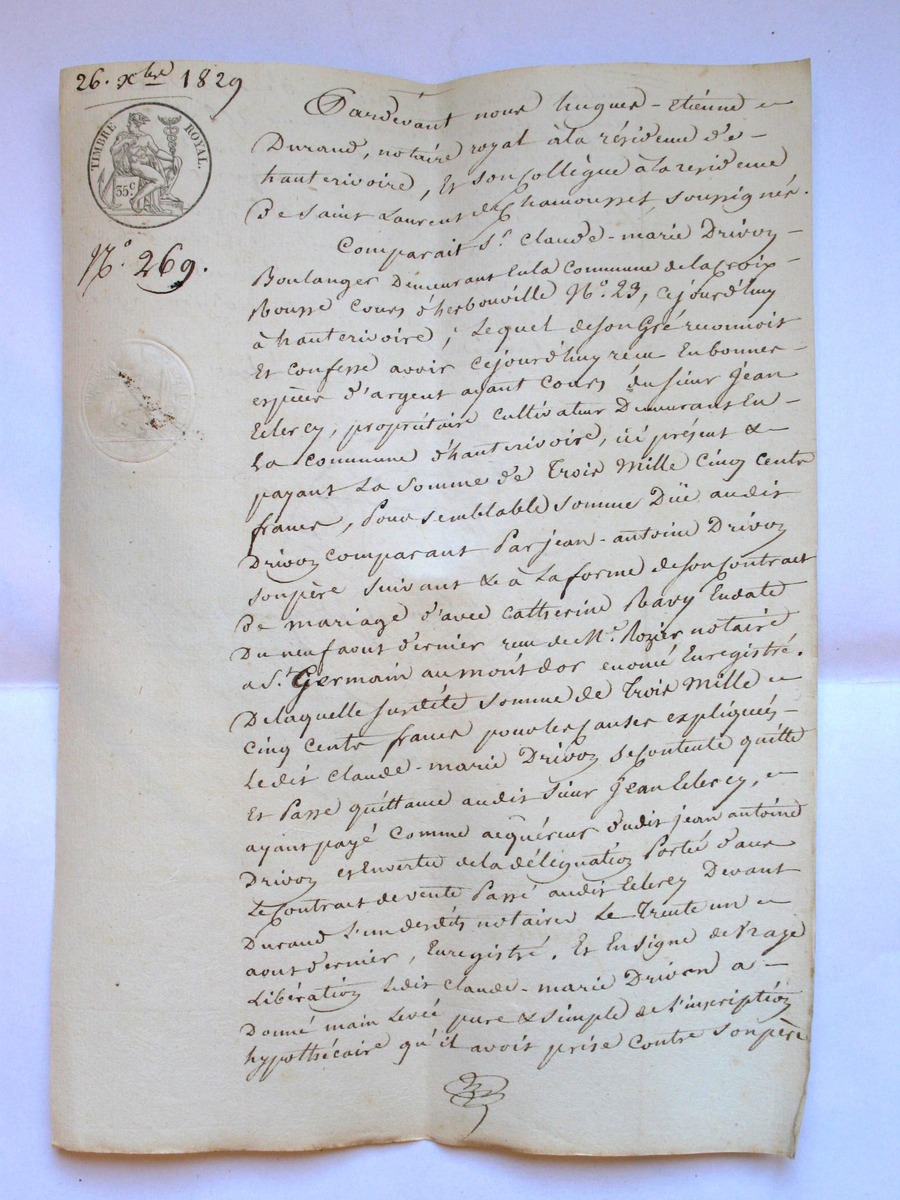 26. Xbre 1829
TIMBRE ROYAL.
35 c
N°. 269.
Pardevant nous hugues-Etiénne
Durand, notaire royal à la résidence d'e
hauterivoire, Et son Collègue à la residence
De Saint Laurent de Chamousset, soussignés.
Comparait Sr. Claude-marie Drivon
Boulanger Demeurant En la Commune de la Croix-
Rousse Cours d'herbouville N°. 23, Cejourd'huy
à hauterivoire; Lequel de son Gré reconnoit
Et Confesse avoir Cejourd'huy reçu En bonnes
espèces d'argent ayant Cours, du Sieur Jean
Eclercy, propriétaire Cultivateur Demeurant En
La Commune d'hauterivoire, ici présent &
payant La Somme de Trois Mille Cinq Cents
francs, Pour semblable somme Düe audit
Drivon Comparant Par jean-antoine Drivon
son père Suivant & à La forme de son Contrait
De mariage d'avec Catherine Ravy En date
Du neuf aout d'ernier reçu de Me. Rozier notaire
a St. Germain au mont dor Enregistré.
De laquelle susdite Somme de Trois Mille
Cinq Cents francs pour les Causes expliquées
Ledit Claude-marie Drivon se Contente quitte
Et Passe quittance audit Sieur Jean Eclercy,
ayant payé Comme acquéreur dudit jean antoine
Drivon et En vertu de la déléguation Portée dans
Le Contrat de vente Passé audit Eclercy Devant
Durand L'un desdits notaires Le Trente un
aout d'ernier, Enregistré. Et En signe de Vraye
Libération Ledit Claude-marie Drivon a
Donné main Levée pure & simple de L'inscription
hypothécaire qu'il avoit prise Contre Son père